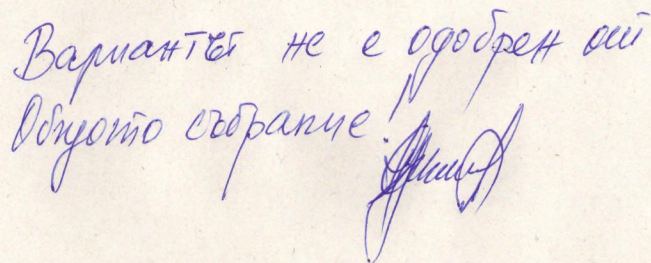 Вариантът не е одобрен от
Общото събрание!